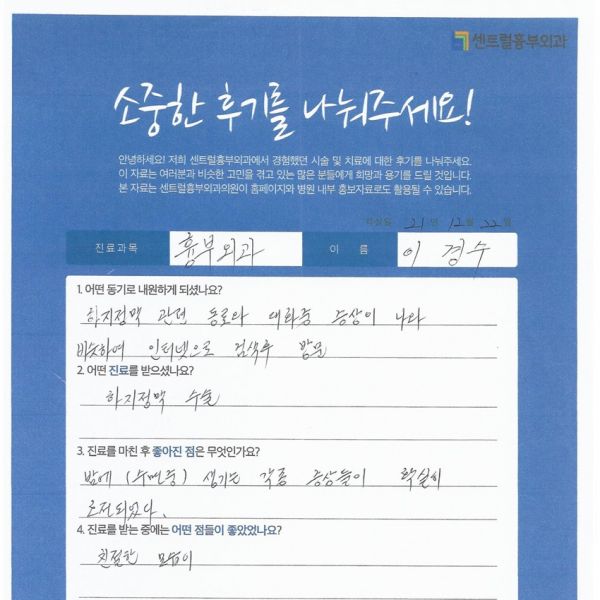 센트럴흉부외과
소중한 후기를 나눠주세요!
안녕하세요! 저희 센트럴흉부외과에서 경험했던 시술 및 치료에 대한 후기를 나눠주세요.
이 자료는 여러분과 비슷한 고민을 겪고 있는 많은 분들에게 희망과 용기를 드릴 것입니다.
본 자료는 센트럴흉부외과의원이 홈페이지와 병원 내부 홍보자료로도 활용될 수 있습니다.
작성일 21년 12월 22일
진료과목 흉부외과 이 름 이 경수
1. 어떤 동기로 내원하게 되셨나요?
하지정맥 관련 동료와 대화중 증상이 나와
비슷하여 인터넷으로 검색후 방문
2. 어떤 진료를 받으셨나요?
하지정맥 수술
3. 진료를 마친 후 좋아진 점은 무엇인가요?
밤에 (수면중) 생기는 각종 증상들이 확실히
호전되었다.
4. 진료를 받는 중에는 어떤 점들이 좋았었나요?
친절한 모습이